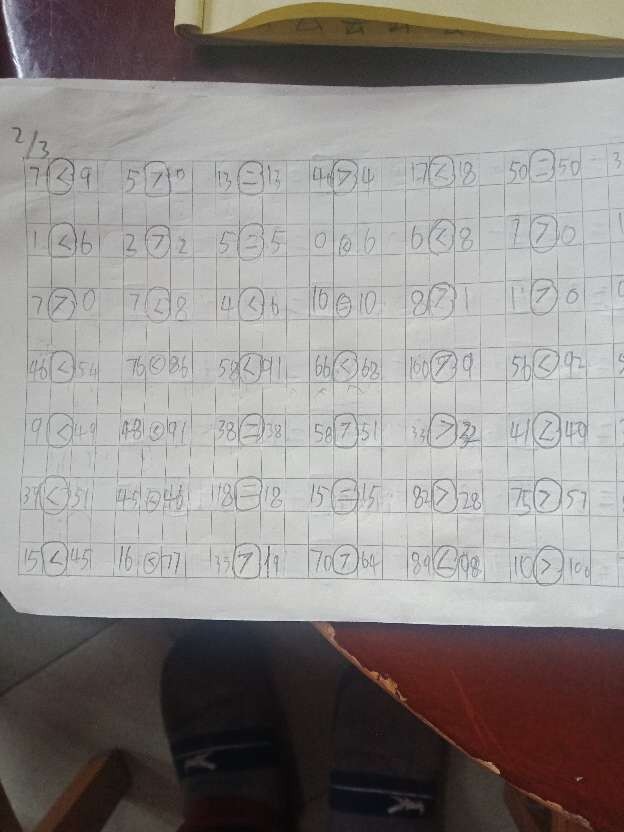 2/3
7<9 5>0 13=13 4>4 17<18 50=50
1<6 2>2 5=5 0<6 6<8 7>0
7>0 7<8 4<6 10=10 8>1 1>0
46<54 76<86 58<91 66<68 100>9 56<92
9<49 48<91 38=38 58>51 33>32 41<49
37<51 45<46 18=18 15=15 82>28 75>57
15<45 16<77 33>19 70>64 89<98 10>100